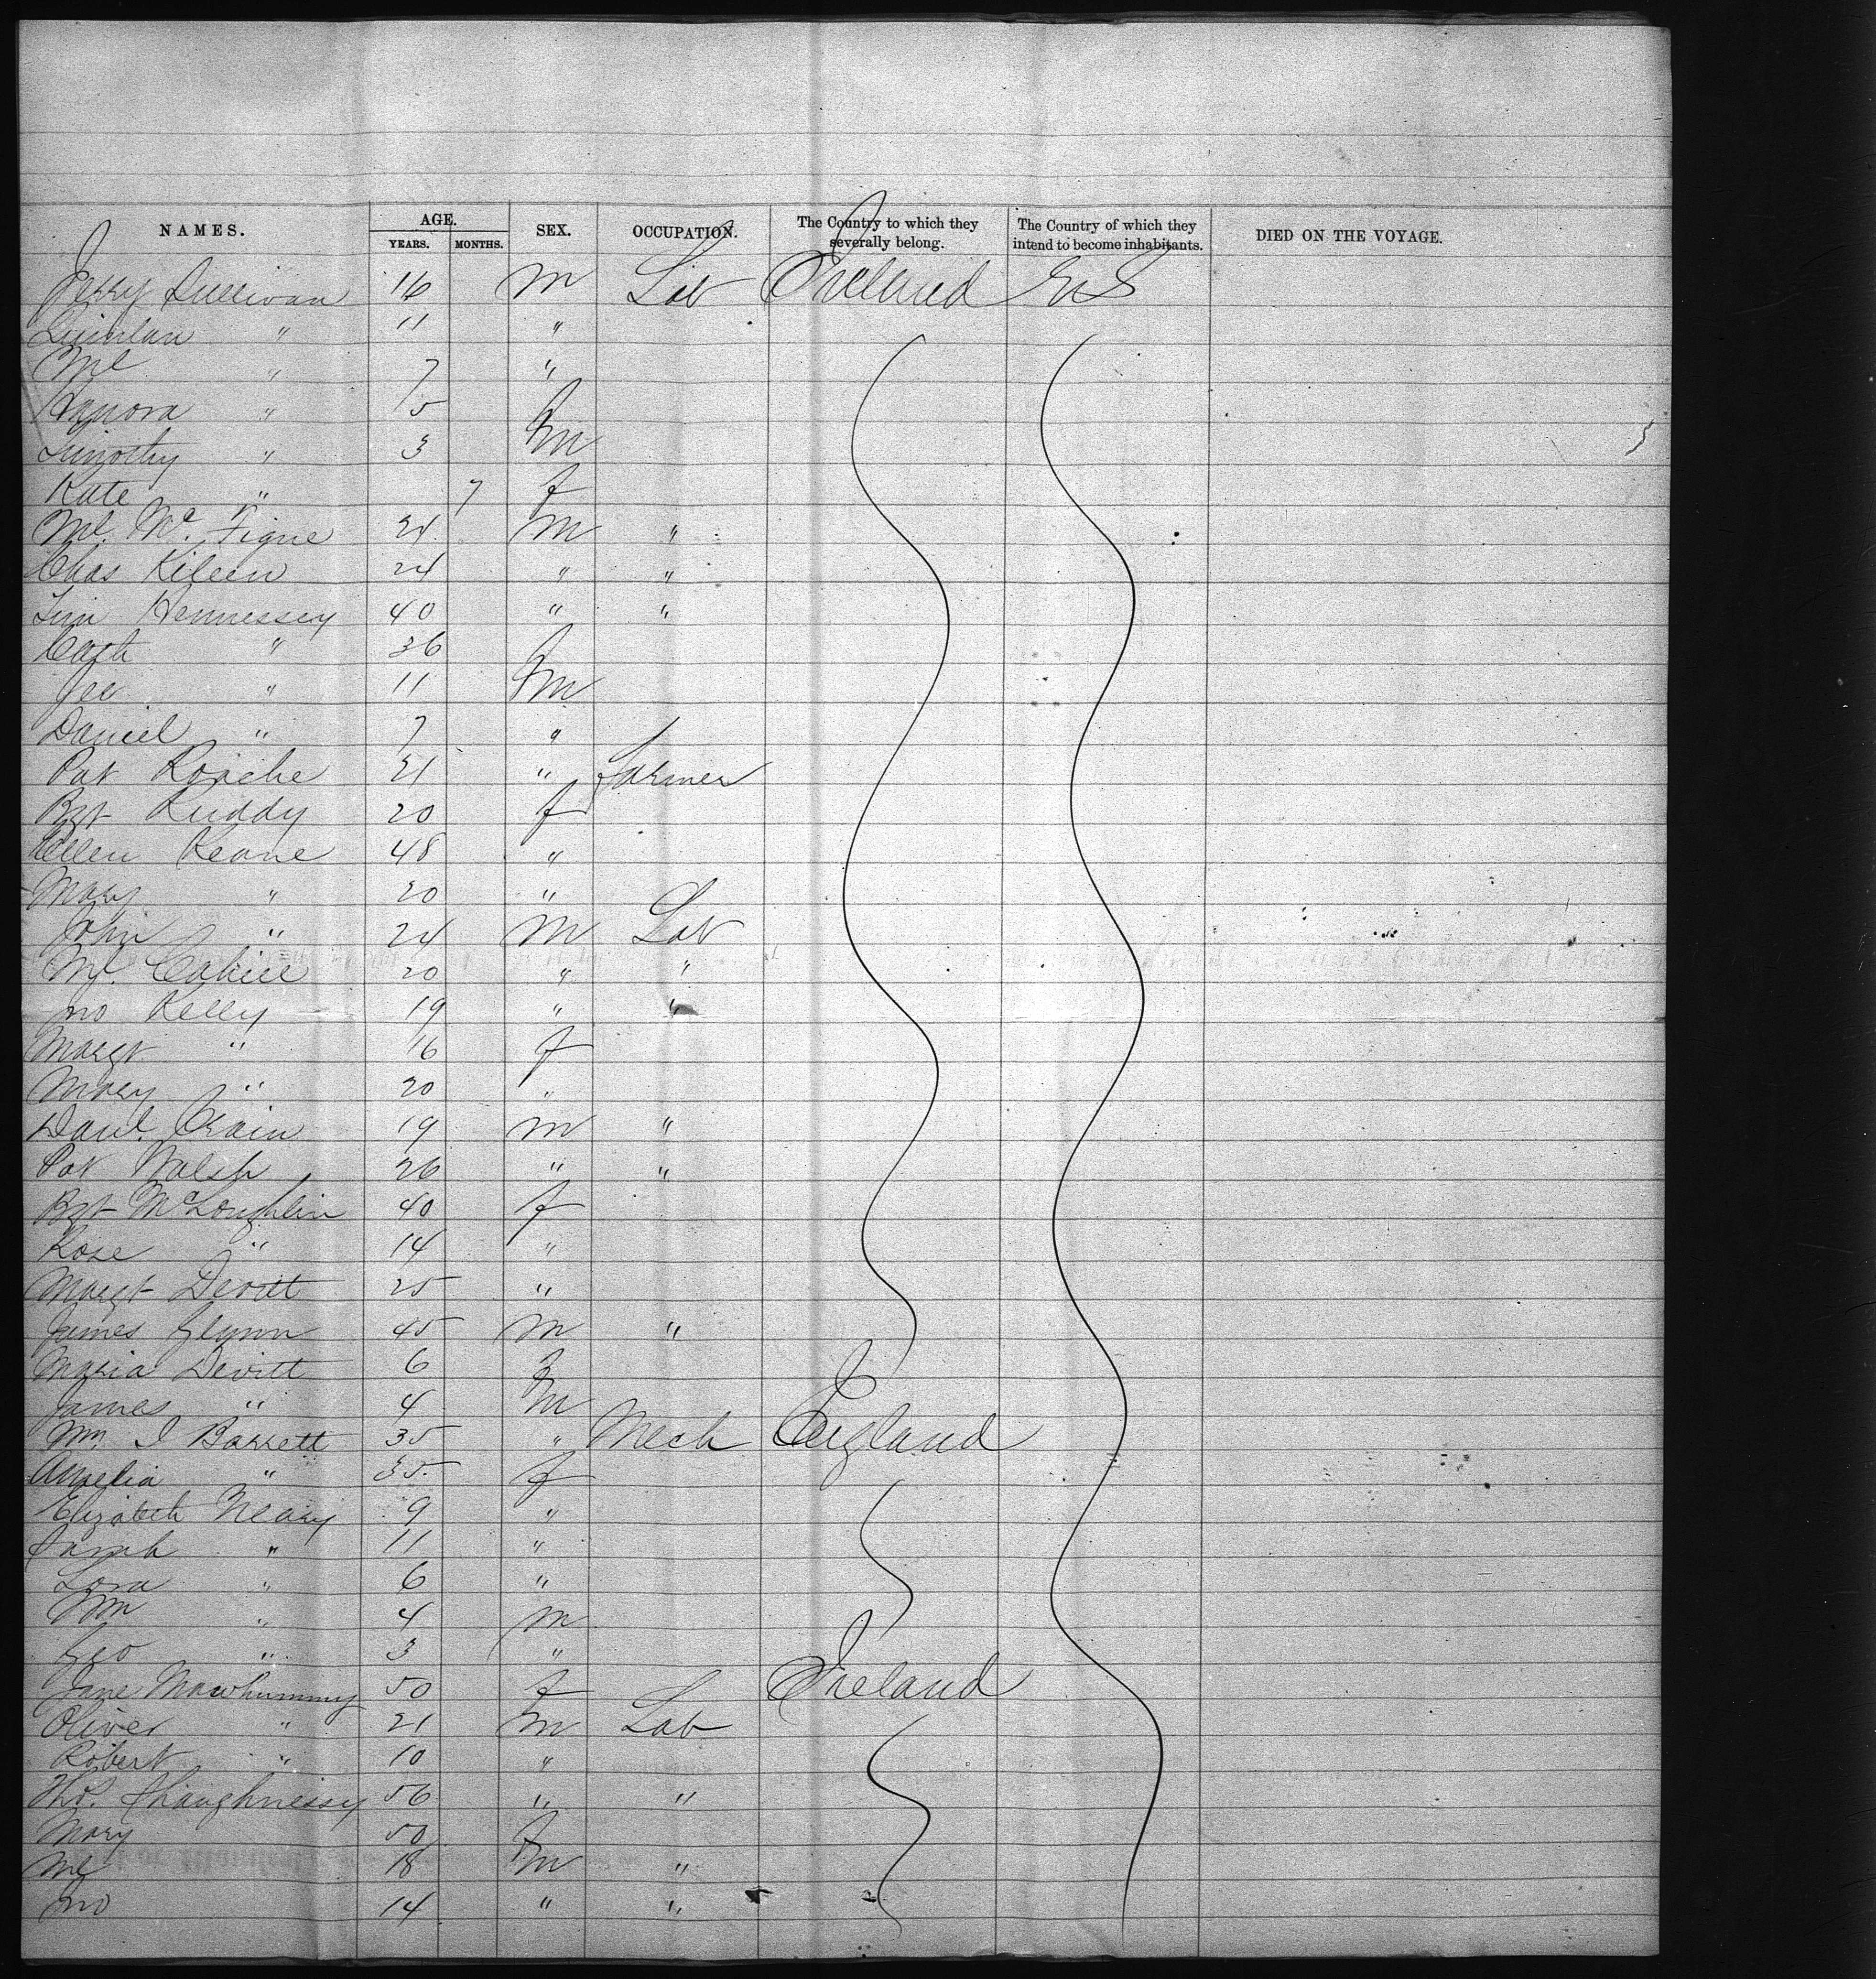 NAMES. AGE. SEX. OCCUPATION. The Country to which they severally belong. The Country of which they intend to become inhabitants. DIED ON THE VOYAGE.
YEARS. MONTHS.
Jerry Sullivan 16 m Lab Ireland US
Quinlan " 11 "
Ml " 7 "
Hanora " 5 f
Timothy " 3 m
Kate " 7 f
Ml. Mc Tigue 24 m "
Chas Kileen 24 " "
Tim Hennessey 40 " "
Cath " 36 f
Jee " 11 m
Daniel " 7 "
Pat Roache 21 " Farmer
Bgt Ruddy 20 f
Ellen Keane 48 "
Mary " 20 "
John " 24 m Lab
Ml. Cahill 20 " "
Jno Kelly 19 " "
Margt " 16 f
Mary " 20 "
Danl. Crain 19 m "
Pat Walsh 26 " "
Bgt McLoughlin 40 f
Rose " 14 "
Margt Devitt 25 "
James Glynn 45 m "
Maria Devitt 6 f
James " 4 m
Wm. J Barrett 35 " Mech England
Amelia " 35 f
Elizabeth Neary 9 "
Sarah " 11 "
Lora " 6 "
Wm " 4 m
Geo " 3 "
Jane Mawhummy 50 f Ireland
Oliver " 21 m Lab
Robert " 10 "
Thos. Shaughnessy 56 " "
Mary 50 f
Ml 18 m "
Jno 14 " "